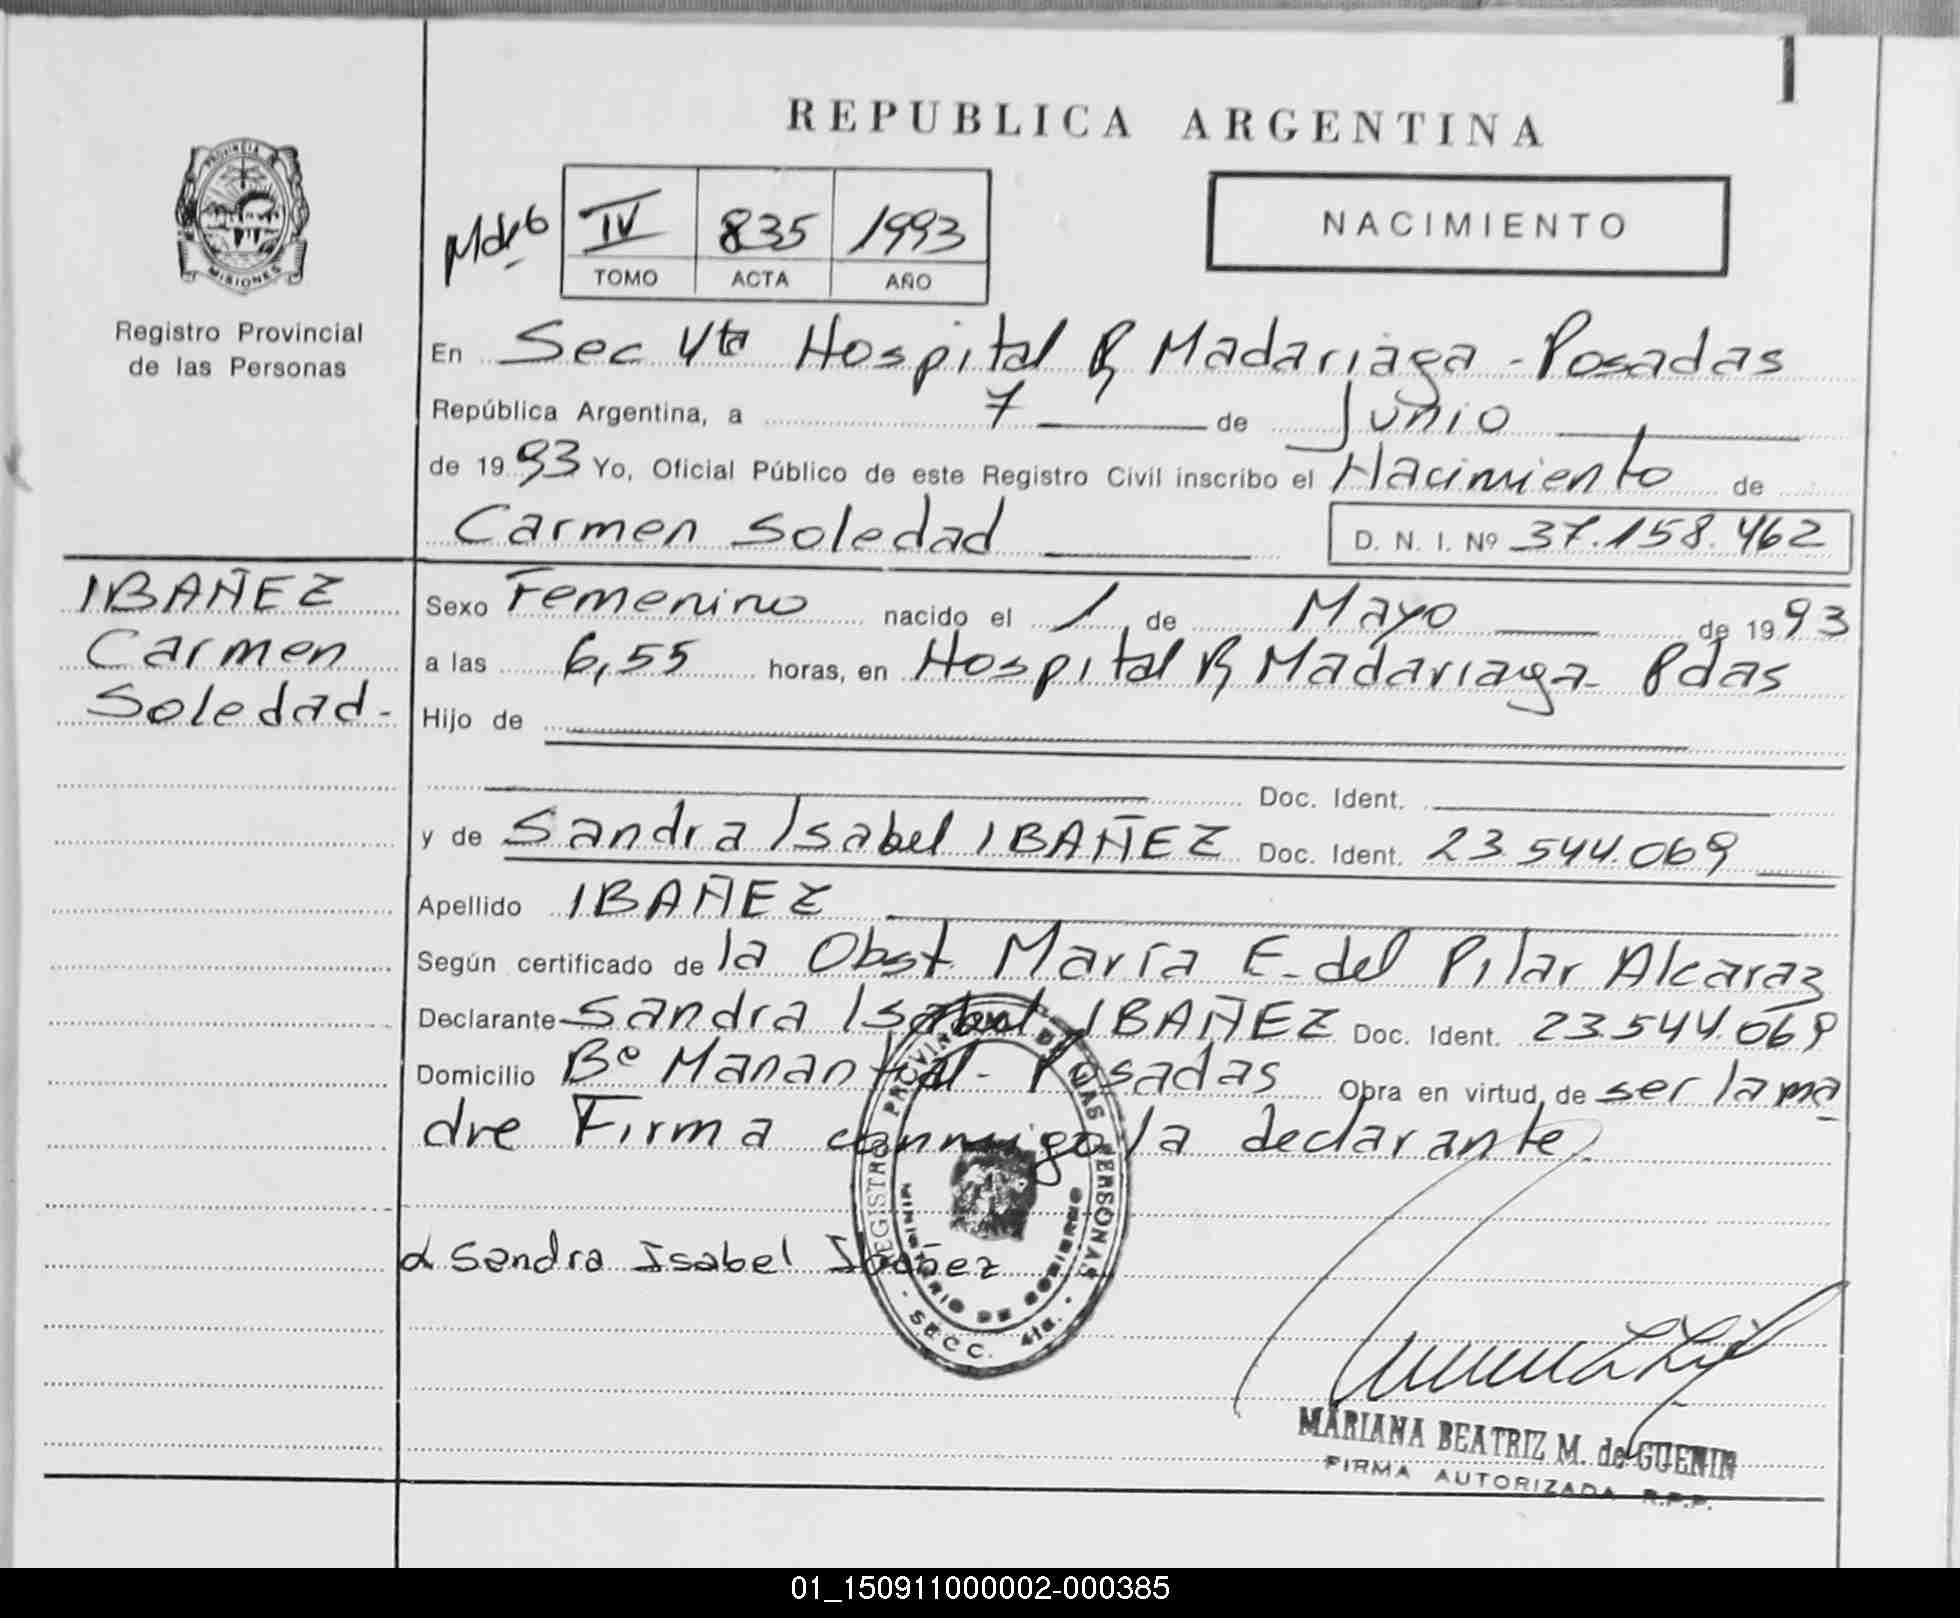 1
REPUBLICA ARGENTINA
PROVINCIA DE
MISIONES
Registro Provincial
de las Personas
IV 835 1993
TOMO ACTA AÑO
NACIMIENTO
En Sec 4ta Hospital R Madariaga - Posadas
República Argentina, a 7 de Junio
de 1993 Yo, Oficial Público de este Registro Civil inscribo el Nacimiento de
Carmen Soledad D. N. I. Nº 37.158.462
IBAÑEZ
Carmen
Soledad -
Sexo Femenino nacido el 1 de Mayo de 1993
a las 6,55 horas, en Hospital R Madariaga - Pdas
Hijo de
Doc. Ident.
y de Sandra Isabel IBAÑEZ Doc. Ident. 23.544.069
Apellido IBAÑEZ
Según certificado de la Obst. María E. del Pilar Alcaraz
Declarante Sandra Isabel IBAÑEZ Doc. Ident. 23.544.069
Domicilio Bº Manantial - Posadas Obra en virtud de ser la ma
dre Firma conmigo la declarante
REGISTRO PROVINCIAL DE LAS PERSONAS
MINISTERIO DE GOBIERNO
- SECC. 4ta. -
Sandra Isabel Ibañez
MARIANA BEATRIZ M. de GUENIN
FIRMA AUTORIZADA R.P.P.
01_150911000002-000385